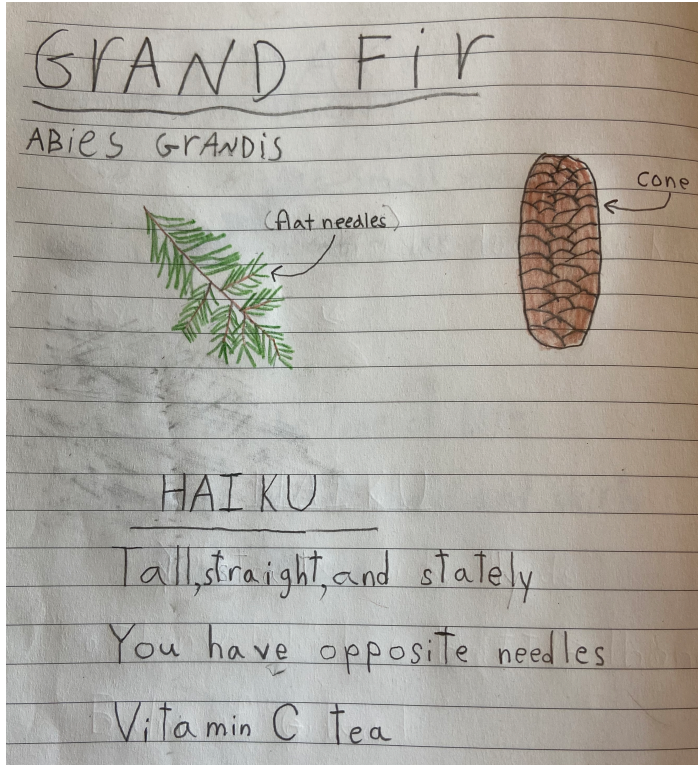 GrAND Fir
ABies GrANDis
(flat needles)
cone
HAIKU
Tall, straight, and stately
You have opposite needles
Vitamin C tea